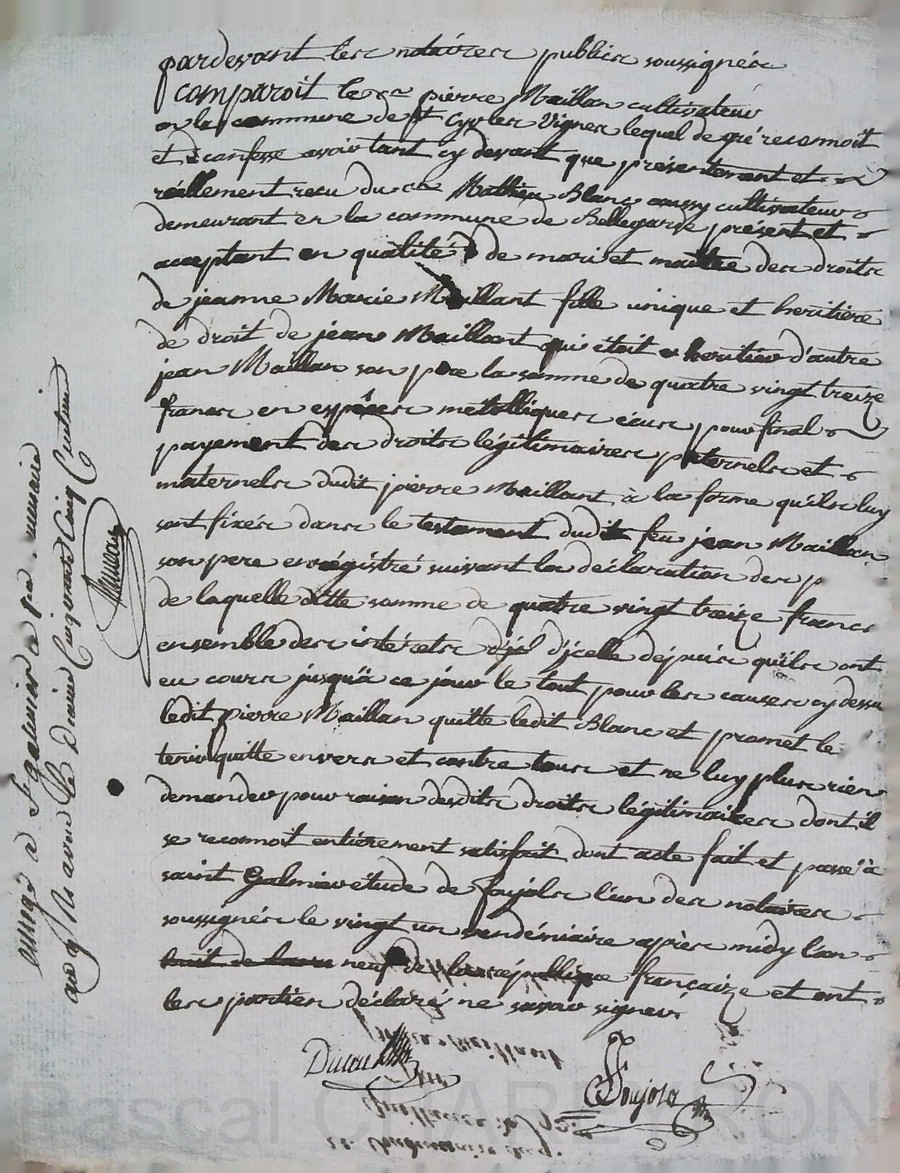 pardevant les notaires publics soussignés
comparoit le cen pierre Maillan cultivateur
en la commune de St Cyr les Vignes lequel de gré reconnoit
et confesse avoir tant cy devant que présentement et
réellement recu du cen Mathieu Blanc aussy cultivateur
demeurant en la commune de Bellegarde présent et
acceptant en qualité de mari et maitre des droits
de jeanne Marie Maillant fille unique et heritière
de droit de jean Maillant qui étoit heritier d'autre
jean Maillan son père la somme de quatre vingt treize
francs en espéces metalliques écus pour final
payement des droits légitimaires paternels et
maternels dudit pierre Maillant à la forme qu'ils luy
sont fixés dans le testament dudit feu jean Maillan
son pere enrégistré suivant la déclaration des p
de laquelle ditte somme de quatre vingt treize francs
ensemble des intérêts d'jcelle depuis qu'ils ont
eu cours jusqu'à ce jour le tout pour les causes cy dessus
ledit pierre Maillan quitte ledit Blanc et promet le
tenir quitte envers et contre tous et ne luy plus rien
demander pour raison desdits droits légitimaires dont il
se reconnoit entièrement satisfait dont acte fait et passé à
saint Galmier étude de foujols l'un des notaires
soussignés le vingt un vendémiaire après midy l'an
huit de la neuf de la république françaize et ont
les parties déclaré ne savoir signer
foujols